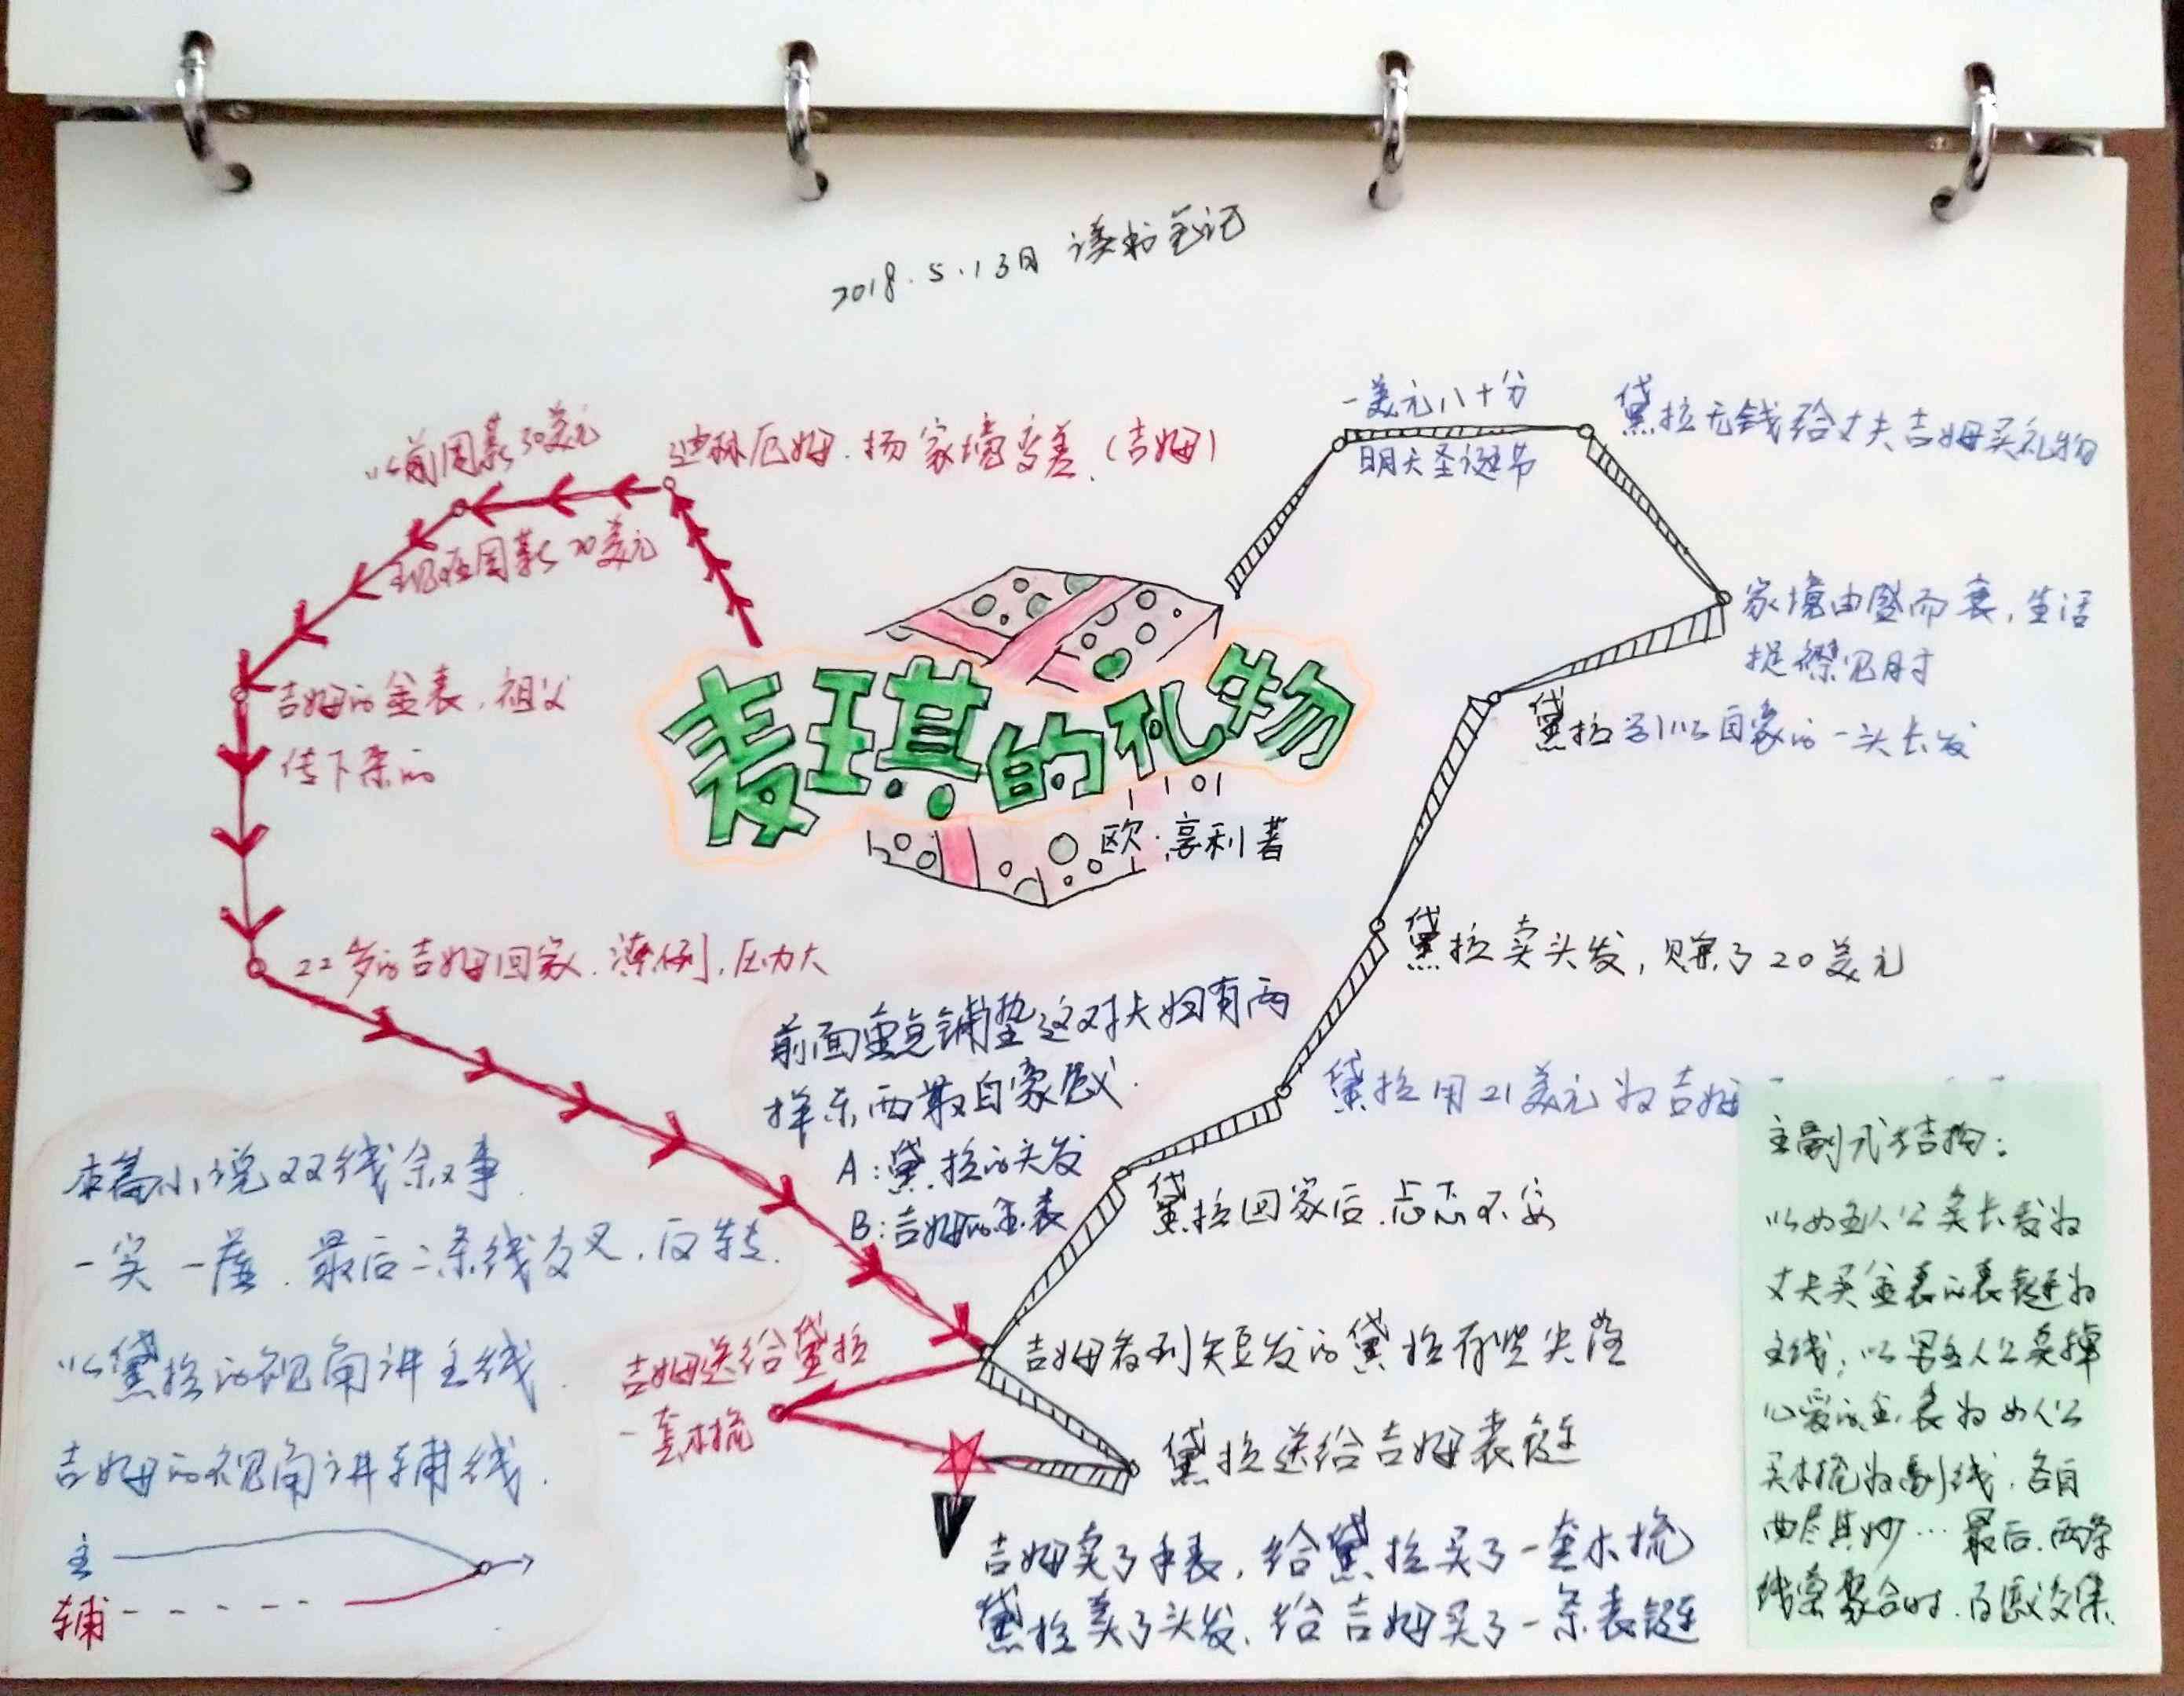 2018.5.13日 读书笔记
一美元八十分
明天圣诞节
黛拉无钱给丈夫吉姆买礼物
家境由盛而衰，生活
捉襟见肘
黛拉引以自豪的一头长发
黛拉卖头发，赚了20美元
黛拉用21美元为吉姆
黛拉回家后.忐忑不安
吉姆看到短发的黛拉有些失落
黛拉送给吉姆表链
迪林厄姆.杨家境变差.(吉姆)
以前周薪30美元
现在周薪20美元
吉姆的金表，祖父
传下来的
22岁的吉姆回家.凄例，压力大
吉姆送给黛拉
一套木梳
麦琪的礼物
欧·享利著
前面重点铺垫这对夫妇有两
样东西最自豪感.
A:黛拉的头发
B:吉姆的金表
本篇小说双线叙事.
一实一虚.最后二条线交叉，反转.
以黛拉的视角讲主线.
吉姆的视角讲辅线.
主
辅
吉姆卖了手表，给黛拉买了一套木梳
黛拉卖了头发、给吉姆买了一条表链
主副式结构：
以女主人公卖长发为
丈夫买金表的表链为
主线；以男主人公卖掉
心爱的金表为女人公
买木梳为副线.各自
曲尽其妙…最后.两条
线索聚合时.百感交集.